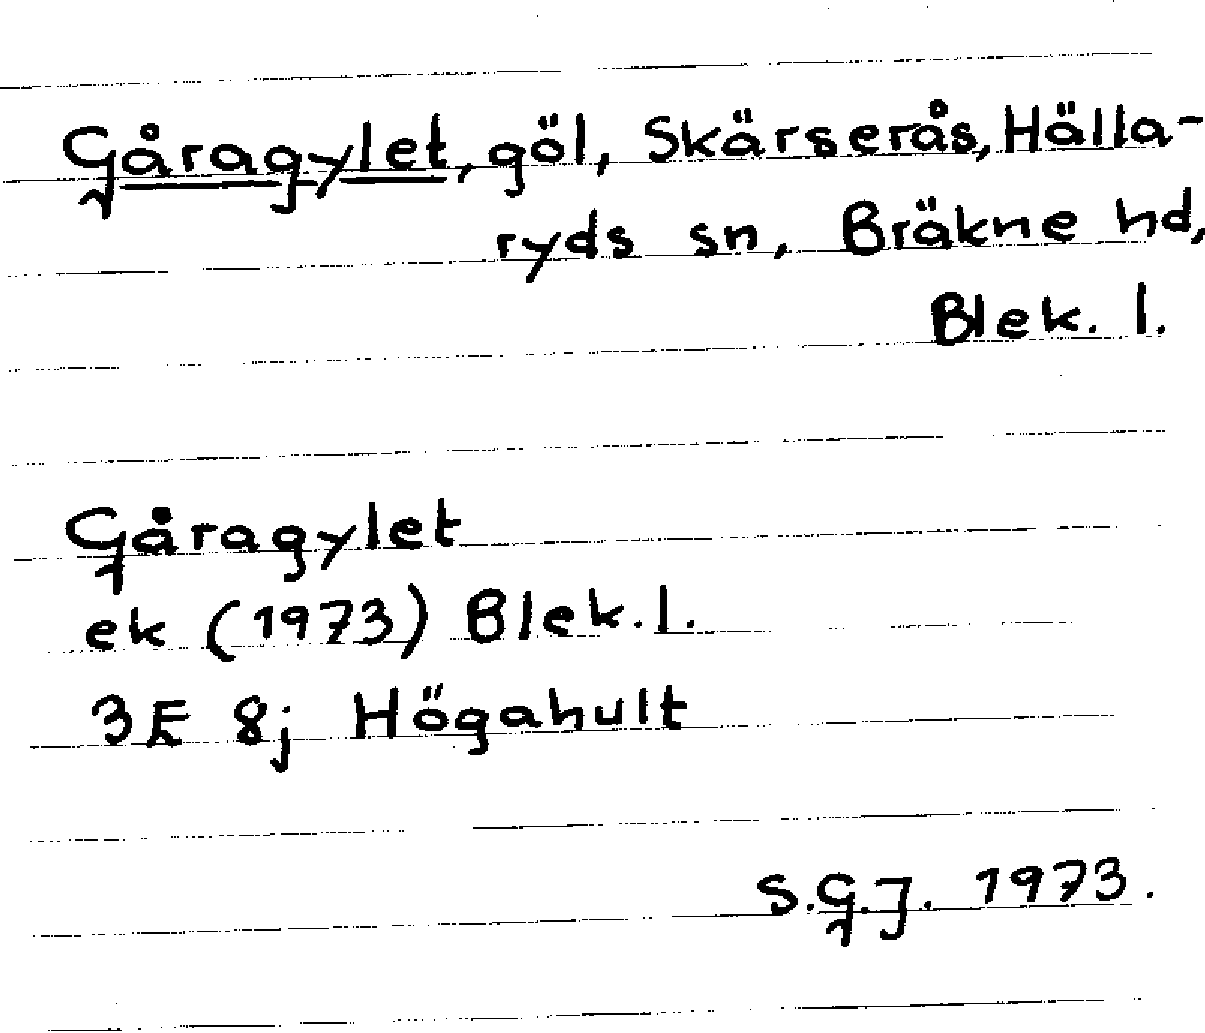 Gåragylet, göl, Skärserås, Hälla-
ryds sn, Bräkne hd,
Blek. l.
Gåragylet
ek (1973) Blek. l.
3E 8j Högahult
S.G.J. 1973.